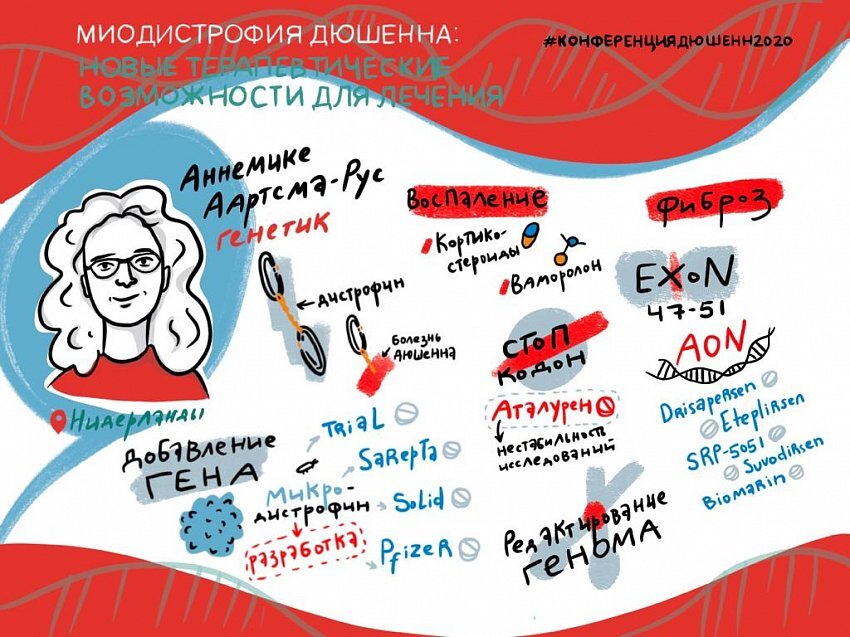 МИОДИСТРОФИЯ ДЮШЕННА:
НОВЫЕ ТЕРАПЕВТИЧЕСКИЕ
ВОЗМОЖНОСТИ ДЛЯ ЛЕЧЕНИЯ
#КОНФЕРЕНЦИЯДЮШЕНН2020
Аннемике
Аартсма-Рус
генетик
Нидерланды
дистрофин
болезнь
Дюшенна
Воспаление
Кортико-
стероиды
Ваморолон
Фиброз
EXON
47-51
AON
Drisapersen
Eteplirsen
SRP-5051
Suvodirsen
Biomarin
СТОП
КОДОН
Аталурен
нестабильность
исследований
добавление
ГЕНА
микро-
дистрофин
разработка
TRiAL
SaRepTa
Solid
PfizeR
Редактирование
ГЕНОМА